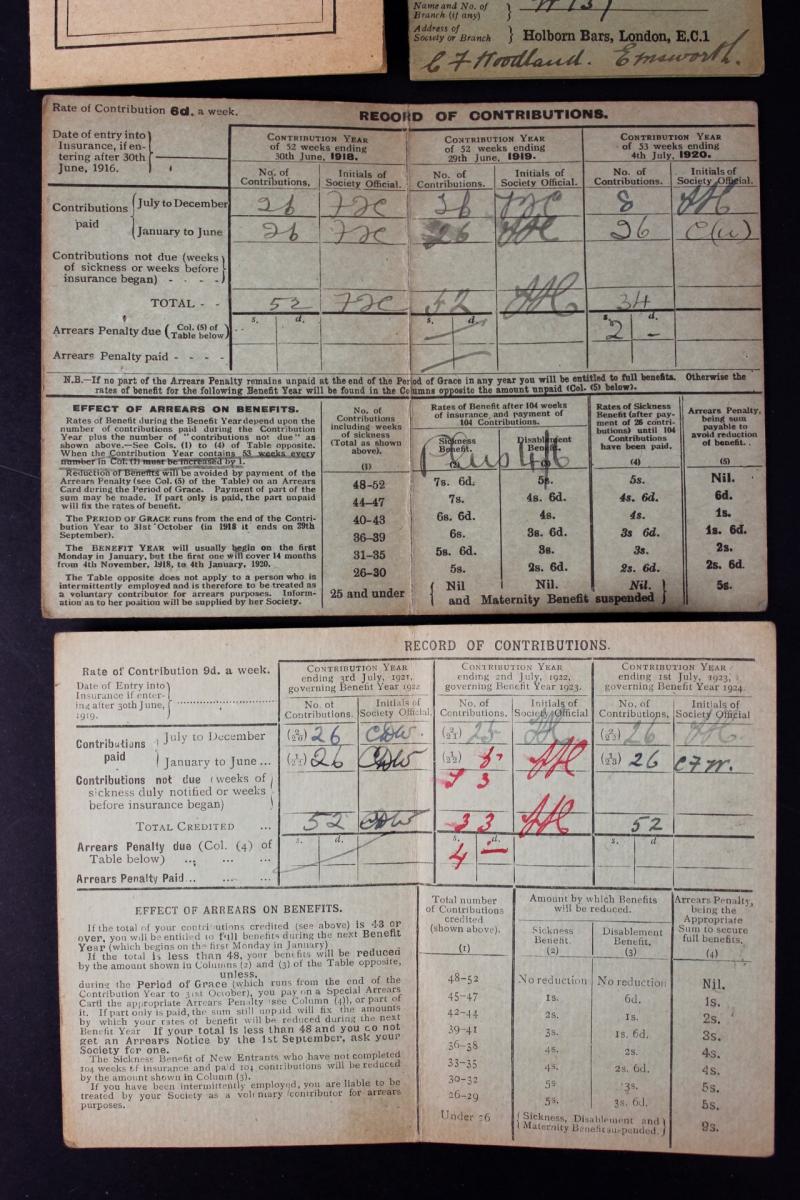 Name and No. of Branch (if any) }
Address of Society or Branch } Holborn Bars, London, E.C.1
C F Woodland. Emsworth.
Rate of Contribution 6d. a week.
RECORD OF CONTRIBUTIONS.
Date of entry into Insurance, if entering after 30th June, 1916.
CONTRIBUTION YEAR of 52 weeks ending 30th June, 1918.
CONTRIBUTION YEAR of 52 weeks ending 29th June, 1919.
CONTRIBUTION YEAR of 53 weeks ending 4th July, 1920.
No. of Contributions. Initials of Society Official. No. of Contributions. Initials of Society Official. No. of Contributions. Initials of Society Official.
Contributions paid { July to December 26 26 8
January to June 26 26 26
Contributions not due (weeks of sickness or weeks before insurance began) - - - -
TOTAL - - 52 52 34
s. d. s. d. s. d.
Arrears Penalty due (Col. (5) of Table below) 2 -
Arrears Penalty paid - - - -
N.B.—If no part of the Arrears Penalty remains unpaid at the end of the Period of Grace in any year you will be entitled to full benefits. Otherwise the
rates of benefit for the following Benefit Year will be found in the Columns opposite the amount unpaid (Col. (5) below).
EFFECT OF ARREARS ON BENEFITS.
Rates of Benefit during the Benefit Year depend upon the
number of contributions paid during the Contribution
Year plus the number of "contributions not due" as
shown above.—See Cols. (1) to (4) of Table opposite.
When the Contribution Year contains 53 weeks every
number in Col. (1) must be increased by 1.
Reduction of Benefits will be avoided by payment of the
Arrears Penalty (see Col. (5) of the Table) on an Arrears
Card during the Period of Grace. Payment of part of the
sum may be made. If part only is paid, the part unpaid
will fix the rates of benefit.
The PERIOD OF GRACE runs from the end of the Contribution
Year to 31st October (in 1918 it ends on 29th
September).
The BENEFIT YEAR will usually begin on the first
Monday in January, but the first one will cover 14 months
from 4th November, 1918, to 4th January, 1920.
The Table opposite does not apply to a person who is
intermittently employed and is therefore to be treated as
a voluntary contributor for arrears purposes. Information
as to her position will be supplied by her Society.
No. of Contributions including weeks of sickness (Total as shown above). (1)
Rates of Benefit after 104 weeks of insurance and payment of 104 Contributions.
Sickness Benefit. (2) Disablement Benefit. (3)
Rates of Sickness Benefit (after payment of 26 contributions) until 104 Contributions have been paid. (4)
Arrears Penalty, being sum payable to avoid reduction of benefit. (5)
48-52 7s. 6d. 5s. 5s. Nil.
44-47 7s. 4s. 6d. 4s. 6d. 6d.
40-43 6s. 6d. 4s. 4s. 1s.
36-39 6s. 3s. 6d. 3s 6d. 1s. 6d.
31-35 5s. 6d. 3s. 3s. 2s.
26-30 5s. 2s. 6d. 2s. 6d. 2s. 6d.
25 and under { Nil Nil. Nil. } 5s.
and Maternity Benefit suspended
RECORD OF CONTRIBUTIONS.
Rate of Contribution 9d. a week.
Date of Entry into Insurance if entering after 30th June, 1919.
CONTRIBUTION YEAR ending 3rd July, 1921, governing Benefit Year 1922
CONTRIBUTION YEAR ending 2nd July, 1922, governing Benefit Year 1923.
CONTRIBUTION YEAR ending 1st July, 1923, governing Benefit Year 1924.
No. of Contributions. Initials of Society Official. No. of Contributions. Initials of Society Official No. of Contributions, Initials of Society Official.
Contributions paid { July to December 26 CDW. 25 26
January to June ... 26 CDW 8 26 CFW.
Contributions not due (weeks of sickness duly notified or weeks before insurance began)
TOTAL CREDITED ... 52 CDW 33 52
s. d. s. d. s. d.
Arrears Penalty due (Col. (4) of Table below) ... ... ... 4 -
Arrears Penalty Paid ... ... ...
EFFECT OF ARREARS ON BENEFITS.
If the total of your contributions credited (see above) is 48 or
over, you will be entitled to full benefits during the next Benefit
Year (which begins on the first Monday in January)
If the total is less than 48, your benefits will be reduced
by the amount shown in Columns (2) and (3) of the Table opposite,
unless,
during the Period of Grace (which runs from the end of the
Contribution Year to 31st October), you pay on a Special Arrears
Card the appropriate Arrears Penalty (see Column (4)), or part of
it. If part only is paid, the sum still unpaid will fix the amounts
by which your rates of benefit will be reduced during the next
Benefit Year If your total is less than 48 and you do not
get an Arrears Notice by the 1st September, ask your
Society for one.
The Sickness Benefit of New Entrants who have not completed
104 weeks of insurance and paid 104 contributions will be reduced
by the amount shown in Column (3).
If you have been intermittently employed, you are liable to be
treated by your Society as a voluntary contributor for arrears
purposes.
Total number of Contributions credited (shown above). (1)
Amount by which Benefits will be reduced.
Sickness Benefit. (2) Disablement Benefit, (3)
Arrears Penalty, being the Appropriate Sum to secure full benefits, (4)
48-52 No reduction No reduction Nil.
45-47 1s. 6d. 1s.
42-44 2s. 1s. 2s.
39-41 3s. 1s. 6d. 3s.
36-38 4s. 2s. 4s.
33-35 4s. 2s. 6d. 4s.
30-32 5s 3s. 5s.
26-29 5s. 3s. 6d. 5s.
Under 26 { Sickness, Disablement and Maternity Benefit suspended. } 9s.